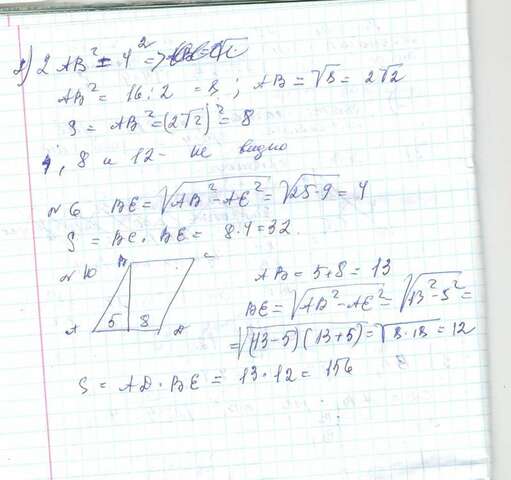 2) 2AB² = 4² =>
AB² = 16 : 2 = 8 ; AB = √8 = 2√2
S = AB² = (2√2)² = 8
4, 8 и 12 - не видно
№ 6 BE = √(AB² - AE²) = √(25-9) = 4
S = BC · BE = 8 · 4 = 32.
№ 10 B C
AB = 5 + 8 = 13
BE = √(AB² - AE²) = √(13² - 5²) =
A 5 8 D
= √((13-5)(13+5)) = √(8·18) = 12
S = AD · BE = 13 · 12 = 156